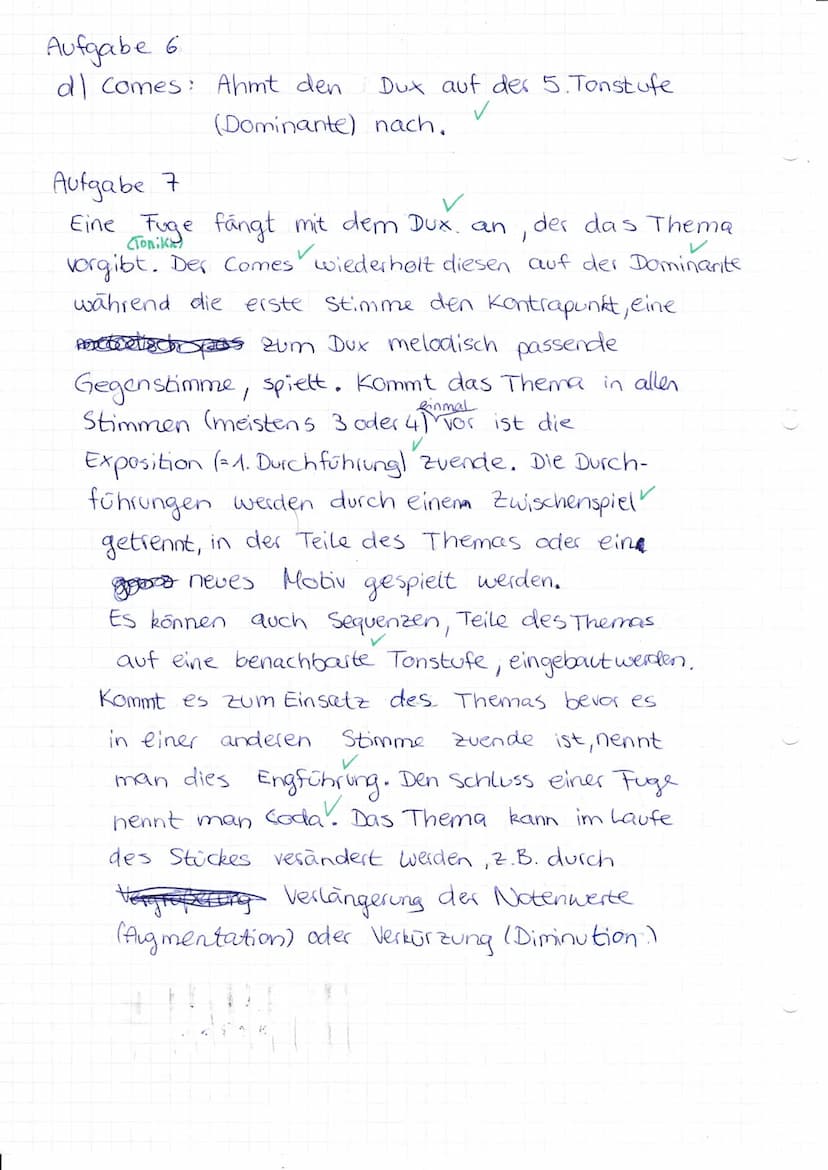 Aufgabe 6
d) Comes: Ahmt den Dux auf der 5. Tonstufe
(Dominante) nach.
Aufgabe 7
Eine Fuge fängt mit dem Dux an, der das Thema
(Tonika)
vorgibt. Der Comes wiederholt diesen auf der Dominante
während die erste Stimme den Kontrapunkt, eine
zum Dux melodisch passende
Gegenstimme, spielt. Kommt das Thema in allen
einmal
Stimmen (meistens 3 oder 4) vor ist die
Exposition (=1. Durchführung) zuende. Die Durch-
führungen werden durch einem Zwischenspiel
getrennt, in der Teile des Themas oder ein
neues Motiv gespielt werden.
Es können auch Sequenzen, Teile des Themas
auf eine benachbarte Tonstufe, eingebaut werden.
Kommt es zum Einsatz des Themas bevor es
in einer anderen Stimme zuende ist, nennt
man dies Engführung. Den Schluss einer Fuge
nennt man Coda. Das Thema kann im Laufe
des Stückes verändert werden, z.B. durch
Vergrößerung Verlängerung der Notenwerte
(Augmentation) oder Verkürzung (Diminution.)